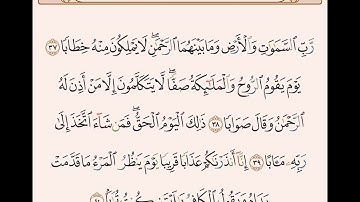 رَّبِّ ٱلسَّمَٰوَٰتِ وَٱلْأَرْضِ وَمَا بَيْنَهُمَا ٱلرَّحْمَٰنِ ۖ لَا يَمْلِكُونَ مِنْهُ خِطَابًا ٣٧
يَوْمَ يَقُومُ ٱلرُّوحُ وَٱلْمَلَٰٓئِكَةُ صَفًّا ۖ لَّا يَتَكَلَّمُونَ إِلَّا مَنْ أَذِنَ لَهُ
ٱلرَّحْمَٰنُ وَقَالَ صَوَابًا ٣٨ ذَٰلِكَ ٱلْيَوْمُ ٱلْحَقُّ ۖ فَمَن شَآءَ ٱتَّخَذَ إِلَىٰ
رَبِّهِۦ مَـَٔابًا ٣٩ إِنَّآ أَنذَرْنَٰكُمْ عَذَابًا قَرِيبًا يَوْمَ يَنظُرُ ٱلْمَرْءُ مَا قَدَّمَتْ
يَدَاهُ وَيَقُولُ ٱلْكَافِرُ يَٰلَيْتَنِى كُنتُ تُرَٰبًۢا ٤٠